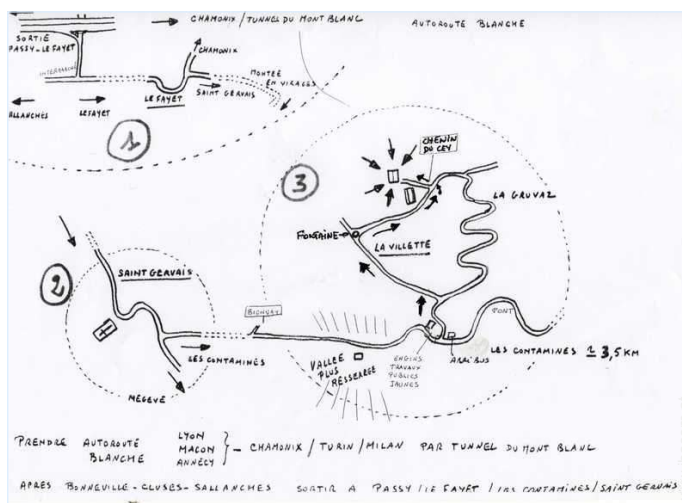 CHAMONIX / TUNNEL DU MONT BLANC
AUTOROUTE BLANCHE
SORTIE
PASSY-LE FAYET
CHAMONIX
INTERMARCHE
LE FAYET
SAINT GERVAIS
MONTEE
EN VIRAGES
ALLANCHES
LE FAYET
1
3
CHEMIN
DU CEY
LA GRUVAZ
FONTAINE
LA VILLETTE
2
SAINT GERVAIS
BIONNAY
PONT
LES CONTAMINES
VALLEE
PLUS
RESSERREE
ENGINS
TRAVAUX
PUBLICS
JAUNES
ARRET BUS
LES CONTAMINES ≃ 3,5 KM
MEGEVE
PRENDRE AUTOROUTE BLANCHE
LYON
MACON
ANNECY
} - CHAMONIX / TURIN / MILAN PAR TUNNEL DU MONT BLANC
APRES BONNEVILLE - CLUSES - SALLANCHES SORTIR A PASSY / LE FAYET / LES CONTAMINES / SAINT GERVAIS